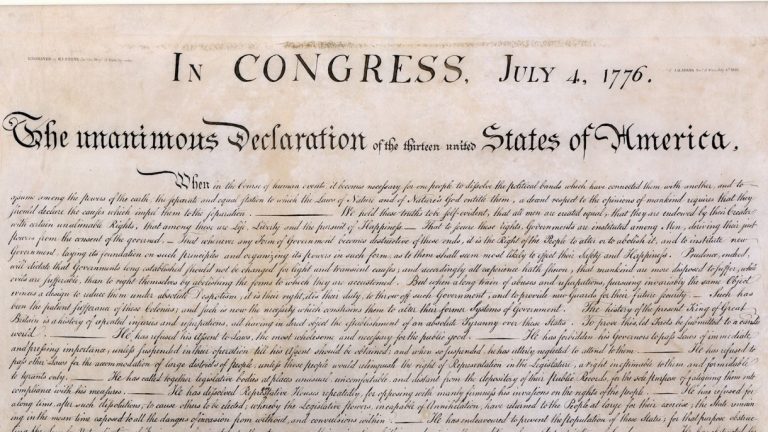 IN CONGRESS, JULY 4, 1776.
The unanimous Declaration of the thirteen united States of America,
When in the Course of human events, it becomes necessary for one people to dissolve the political bands which have connected them with another, and to
assume among the powers of the earth, the separate and equal station to which the Laws of Nature and of Nature's God entitle them, a decent respect to the opinions of mankind requires that they
should declare the causes which impel them to the separation. — We hold these truths to be self-evident, that all men are created equal, that they are endowed by their Creator
with certain unalienable Rights, that among these are Life, Liberty and the pursuit of Happiness.— That to secure these rights, Governments are instituted among Men, deriving their just
powers from the consent of the governed, — That whenever any Form of Government becomes destructive of these ends, it is the Right of the People to alter or to abolish it, and to institute new
Government, laying its foundation on such principles and organizing its powers in such form, as to them shall seem most likely to effect their Safety and Happiness. Prudence, indeed,
will dictate that Governments long established should not be changed for light and transient causes; and accordingly all experience hath shewn, that mankind are more disposed to suffer, while
evils are sufferable, than to right themselves by abolishing the forms to which they are accustomed. But when a long train of abuses and usurpations, pursuing invariably the same Object
evinces a design to reduce them under absolute Despotism, it is their right, it is their duty, to throw off such Government, and to provide new Guards for their future security. — Such has
been the patient sufferance of these Colonies; and such is now the necessity which constrains them to alter their former Systems of Government. The history of the present King of Great
Britain is a history of repeated injuries and usurpations, all having in direct object the establishment of an absolute Tyranny over these States. To prove this, let Facts be submitted to a candid
world. — He has refused his Assent to Laws, the most wholesome and necessary for the public good. — He has forbidden his Governors to pass Laws of immediate
and pressing importance, unless suspended in their operation till his Assent should be obtained; and when so suspended, he has utterly neglected to attend to them. — He has refused to
pass other Laws for the accommodation of large districts of people, unless those people would relinquish the right of Representation in the Legislature, a right inestimable to them and formidable
to tyrants only. — He has called together legislative bodies at places unusual, uncomfortable, and distant from the depository of their Public Records, for the sole purpose of fatiguing them into
compliance with his measures. — He has dissolved Representative Houses repeatedly, for opposing with manly firmness his invasions on the rights of the people. — He has refused for
a long time, after such dissolutions, to cause others to be elected; whereby the Legislative powers, incapable of Annihilation, have returned to the People at large for their exercise; the State remain
ing in the mean time exposed to all the dangers of invasion from without, and convulsions within. — He has endeavoured to prevent the Population of these States; for that purpose obstruct